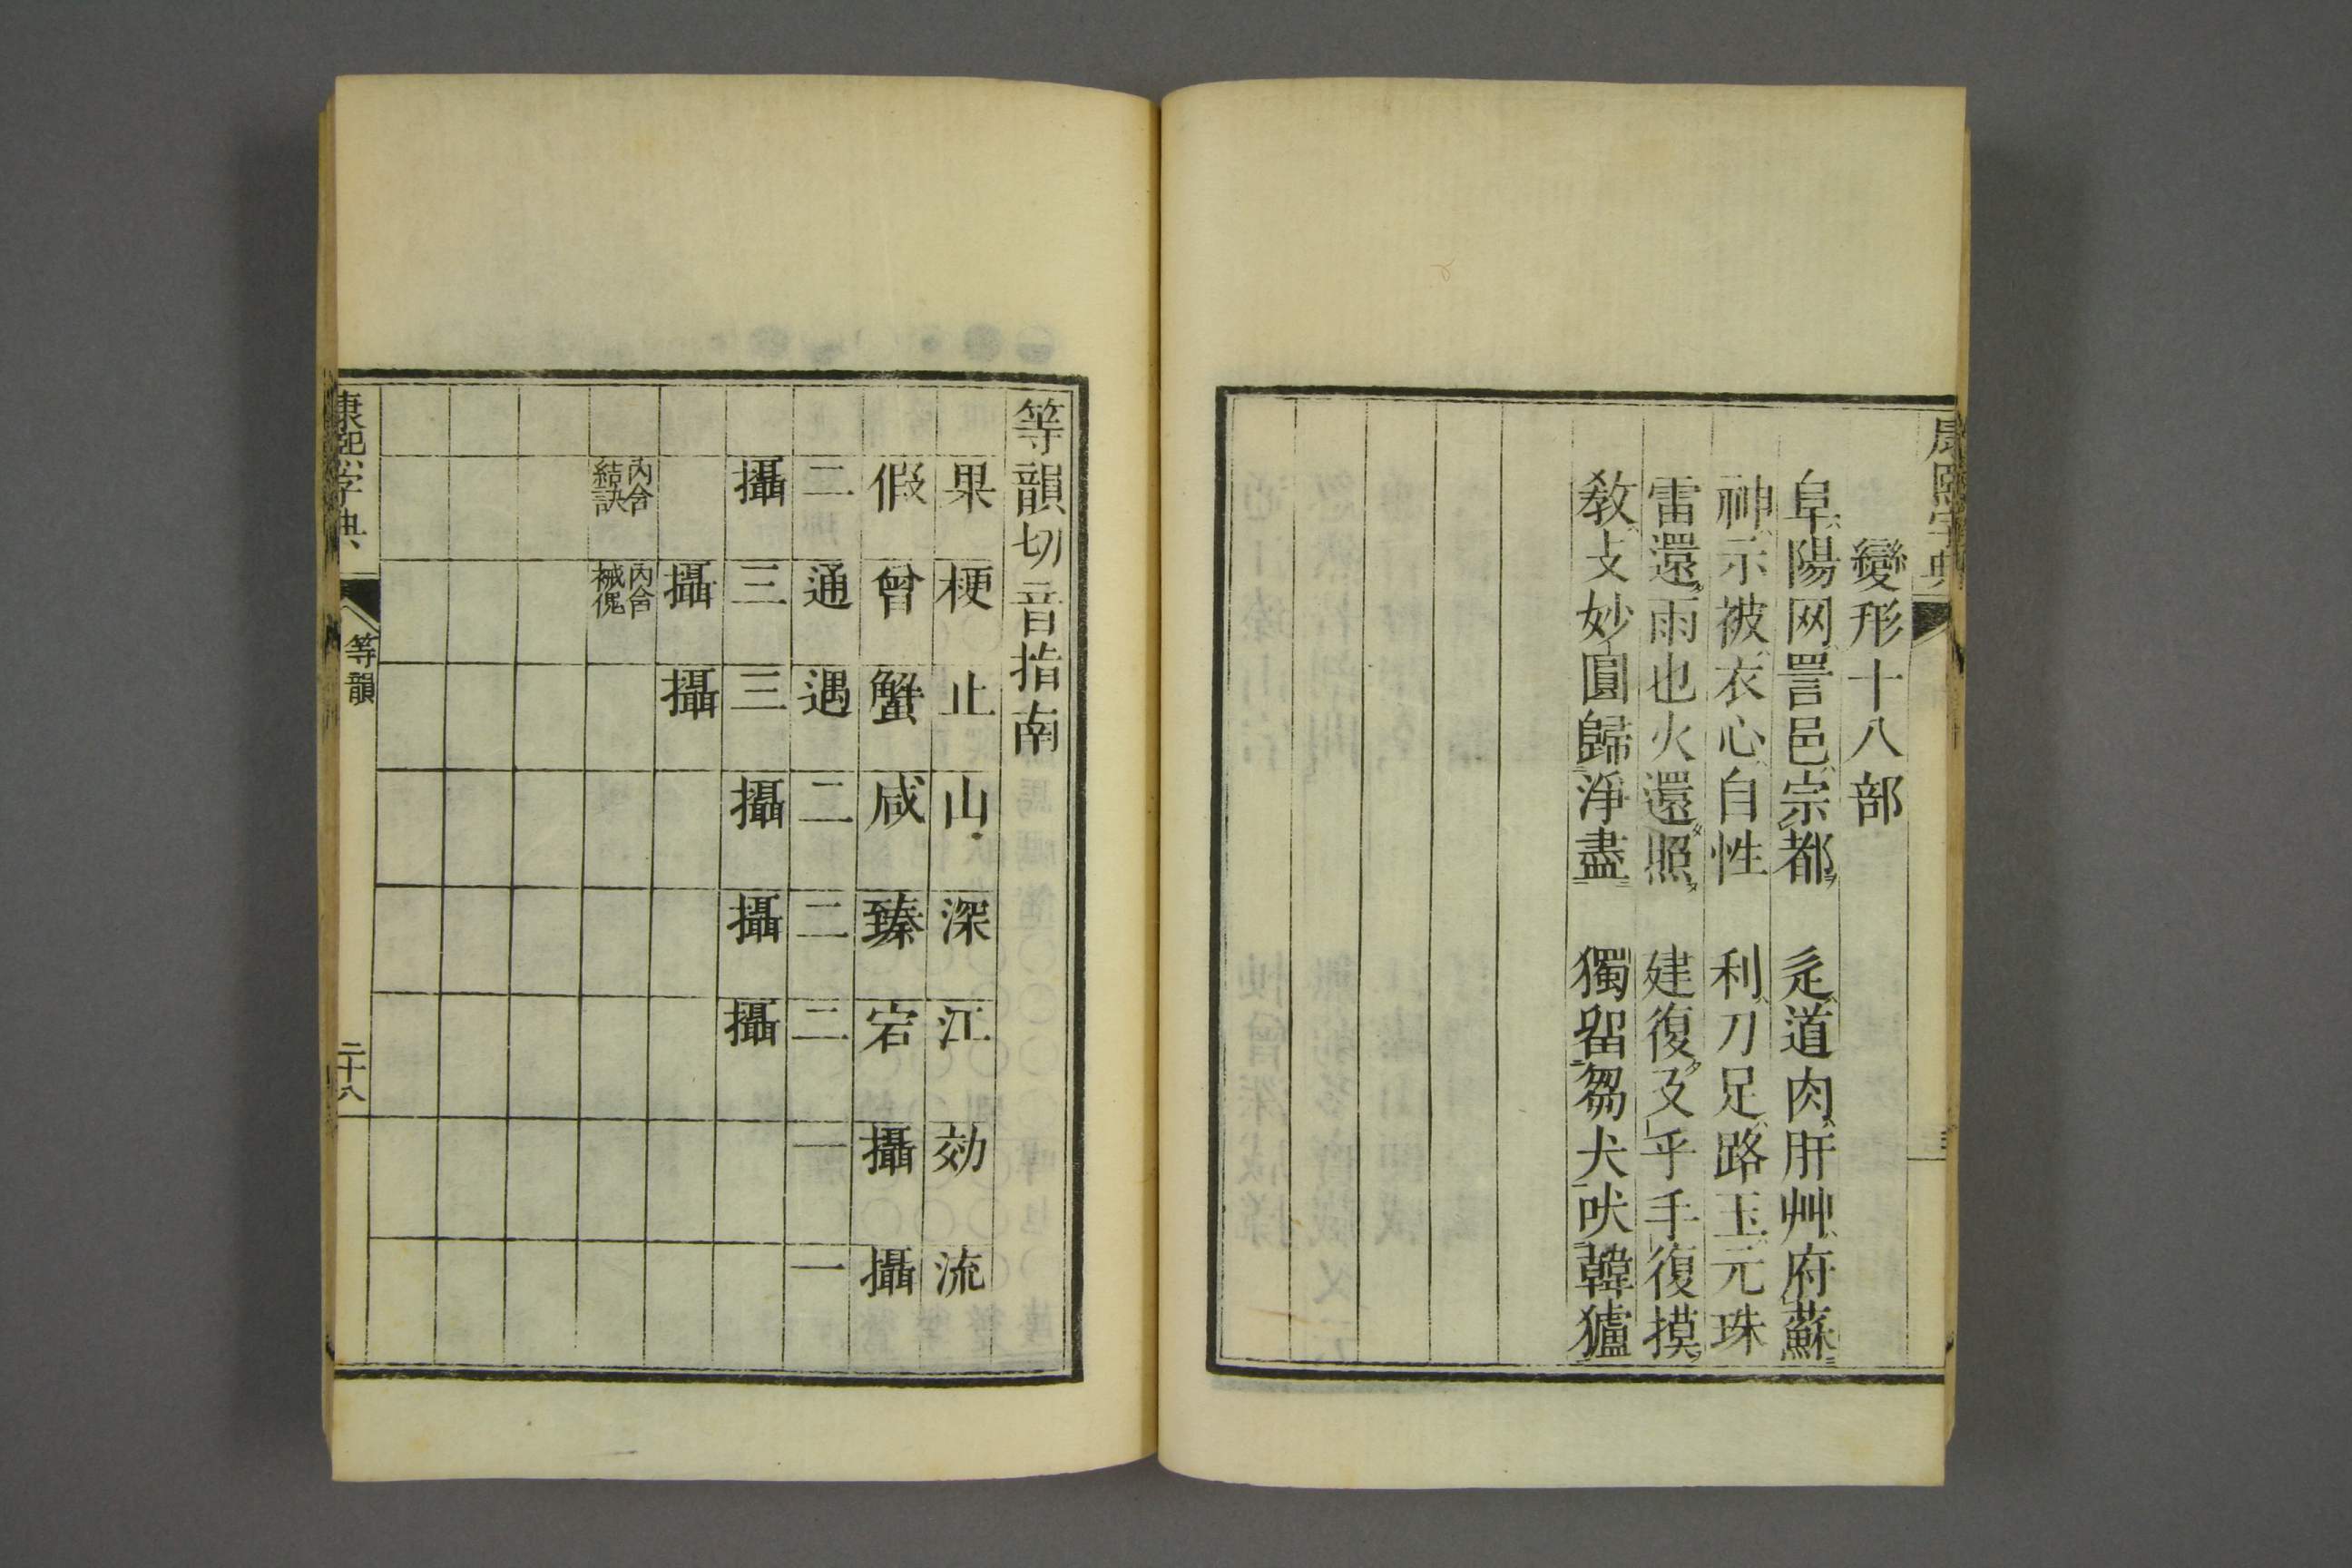 康熙字典
變形十八部
阜陽网詈邑宗都 辵道肉肝艸府蘇
神示被衣心自性 利刀足路玉元珠
雷還雨也火還照 建復及乎手復摸
敎攴妙圓歸淨盡 獨留芻犬吠韓獹
等韻切音指南
果 梗 止 山 深 江 効 流
假 曾 蟹 咸 臻 宕 攝 攝
二 通 遇 二 二 二 一 一
攝 三 三 攝 攝 攝
攝 攝
內含結訣 內含
康熙字典 等韻 二十八